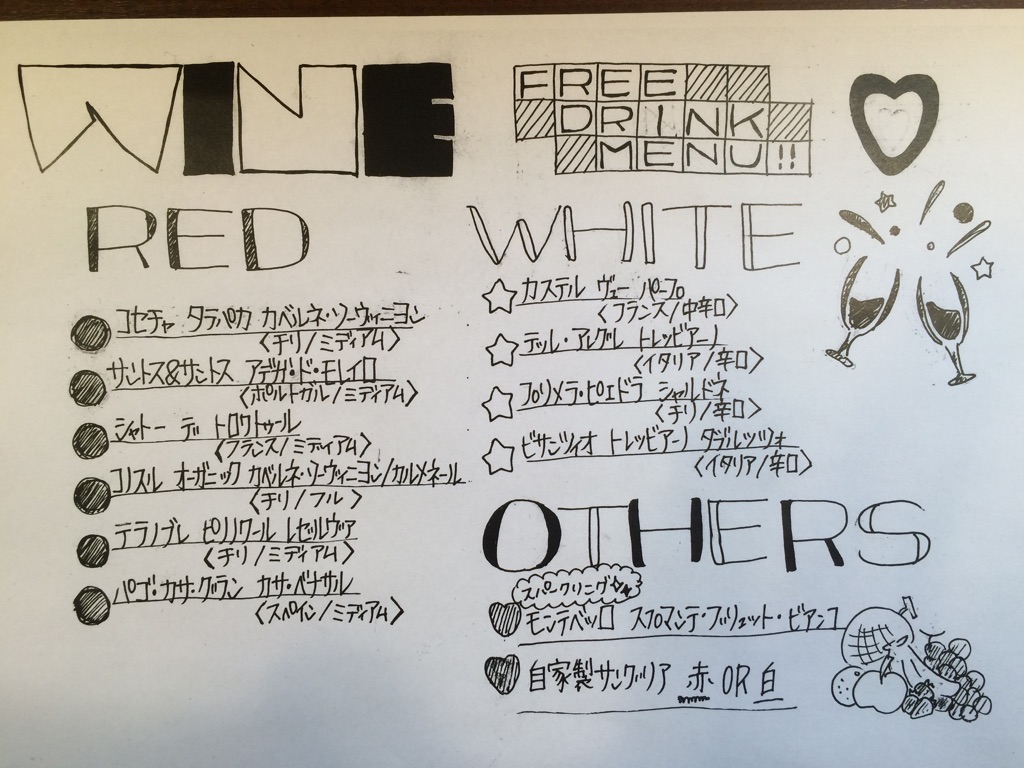 WINE
FREE
DRINK
MENU!!
RED
コセチャ タラパカ カベルネ・ソーヴィニヨン
〈チリ/ミディアム〉
サントス&サントス アデガ・ド・モレイロ
〈ポルトガル/ミディアム〉
シャトー デ トロワトゥール
〈フランス/ミディアム〉
コノスル オーガニック カベルネ・ソーヴィニヨン/カルメネール
〈チリ/フル〉
テラノブレ ピノノワール レゼルヴァ
〈チリ/ミディアム〉
パゴ・カサ・グラン カサ・ベナサル
〈スペイン/ミディアム〉
WHITE
カステル ヴュー パープ
〈フランス/中辛口〉
テッレ・アレグレ トレッビアーノ
〈イタリア/辛口〉
プリメラ・ピエドラ シャルドネ
〈チリ/辛口〉
ビサンツィオ トレッビアーノ ダブルッツォ
〈イタリア/辛口〉
OTHERS
スパークリング☆
モンテベッロ スプマンテ・ブリュット・ビアンコ
自家製サングリア 赤 OR 白